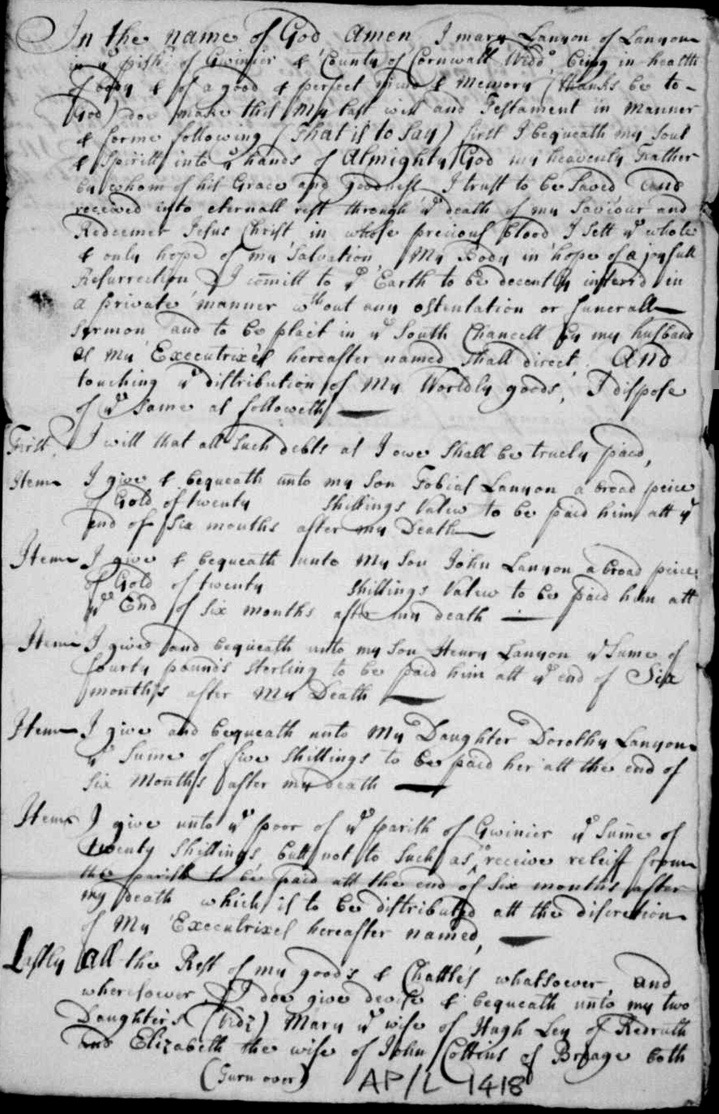 In the name of God Amen I mary Lanyon of Lanyon
in ye pish of Gwinier & County of Cornwall Widdo being in health
of body & of a good & perfect mind & Memory (thanks be to
God) doe make this my last will and Testament in manner
& forme following (That is to say) first I bequeath my soul
& spiritt into ye hands of Almighty God my heavenly Father
by whom of his Grace and goodness I trust to be saved and
received into eternall rest through ye death of my Saviour and
Redeemer Jesus Christ in whose precious blood I sett ye whole
& only hope of my Salvation My Body in hope of a joyfull
Resurrection I comitt to ye Earth to be decently interrd in
a private manner wthout any ostentation or funerall
sermon and to be plact in ye South Chancell by my husband
as my Executrixes hereafter named shall direct, And
touching ye distribution of my Worldly goods, I dispose
of ye same as followeth
First, I will that all such debts as I owe shall be truely paid,
Item I give & bequeath unto my son Tobias Lanyon a broad peice
of Gold of twenty shillings Valew to be paid him att ye
end of six months after my Death
Item I give & bequeath unto my son John Lanyon a broad peice
of Gold of twenty shillings Valew to be paid him att
ye End of six months after my death
Item I give and bequeath unto my son Henry Lanyon ye sume of
fourty pounds sterling to be paid him att ye end of Six
months after my Death
Item I give and bequeath unto my Daughter Dorothy Lanyon
ye sume of five shillings to be paid her att the end of
six Months after my death
Item I give unto ye poor of ye parish of Gwinier ye sume of
twenty shillings, butt not to such as receive reliff from
the parish to be paid att the end of six months after
my death which is to be distributed att the discretion
of my Executrixes hereafter named,
Lastly All the Rest of my goods & Chattles whatsoever, and
wheresoever I doe give devise & bequeath unto my two
Daughters (vidz) Mary ye wife of Hugh Ley of Redruth
and Elizabeth the wife of John Collins of Breage both
(turn over) AP/L 1418